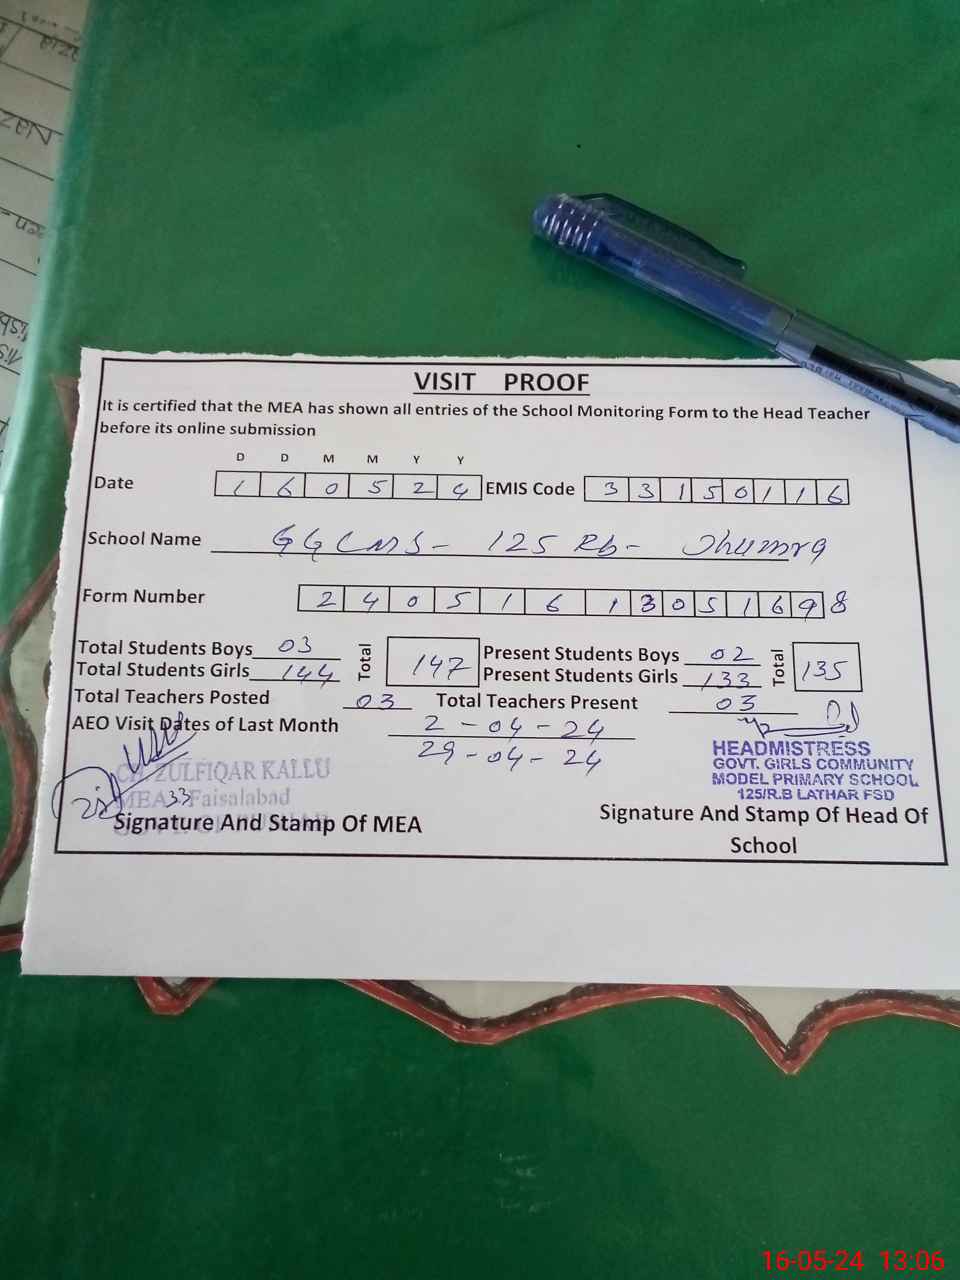 VISIT PROOF
It is certified that the MEA has shown all entries of the School Monitoring Form to the Head Teacher
before its online submission
D D M M Y Y
Date 1 6 0 5 2 4 EMIS Code 3 3 1 5 0 1 1 6
School Name GGCMS- 125 Rb- Jhumra
Form Number 2 4 0 5 1 6 1 3 0 5 1 6 9 8
Total Students Boys 03 Total 147 Present Students Boys 02 Total 135
Total Students Girls 144 Present Students Girls 133
Total Teachers Posted 03 Total Teachers Present 03
AEO Visit Dates of Last Month 2-04-24
29-04-24
CH. ZULFIQAR KALLU
MEA 33 Faisalabad
Signature And Stamp Of MEA
HEADMISTRESS
GOVT. GIRLS COMMUNITY
MODEL PRIMARY SCHOOL
125/R.B LATHAR FSD
Signature And Stamp Of Head Of
School
16-05-24 13:06